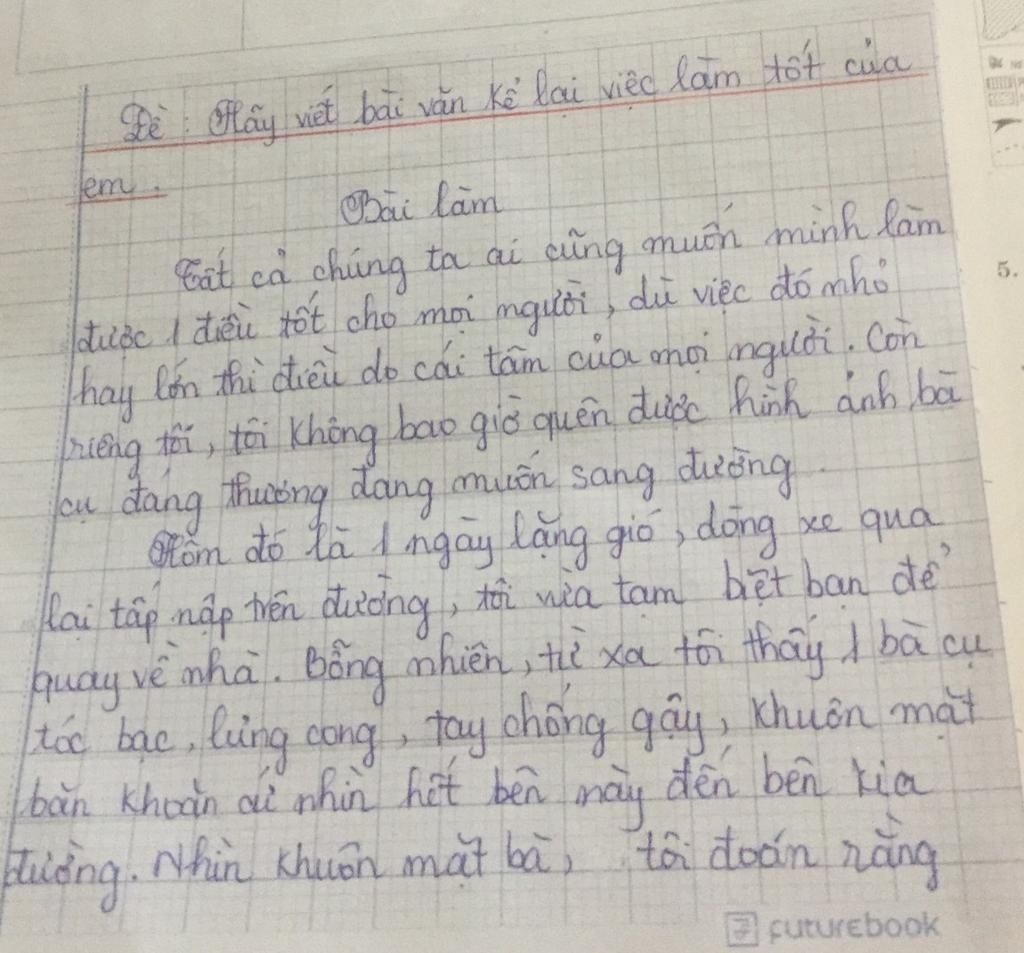 Đề : Hãy viết bài văn kể lại việc làm tốt của
em.
Bài làm
Tất cả chúng ta ai cũng muốn mình làm
được 1 điều tốt cho mọi người, dù việc đó nhỏ
hay lớn thì điều do cái tâm của mọi người. Còn
riêng tôi, tôi không bao giờ quên được hình ảnh bà
cụ đáng thương đang muốn sang đường.
Hôm đó là 1 ngày lặng gió, dòng xe qua
lại tấp nập trên đường, tôi vừa tạm biệt bạn để
quay về nhà. Bỗng nhiên, từ xa tôi thấy 1 bà cụ
tóc bạc, lưng cong, tay chống gậy, khuôn mặt
băn khoăn nhìn hết bên này đến bên kia
đường. Nhìn khuôn mặt bà, tôi đoán rằng
FUTUREBOOK
5.